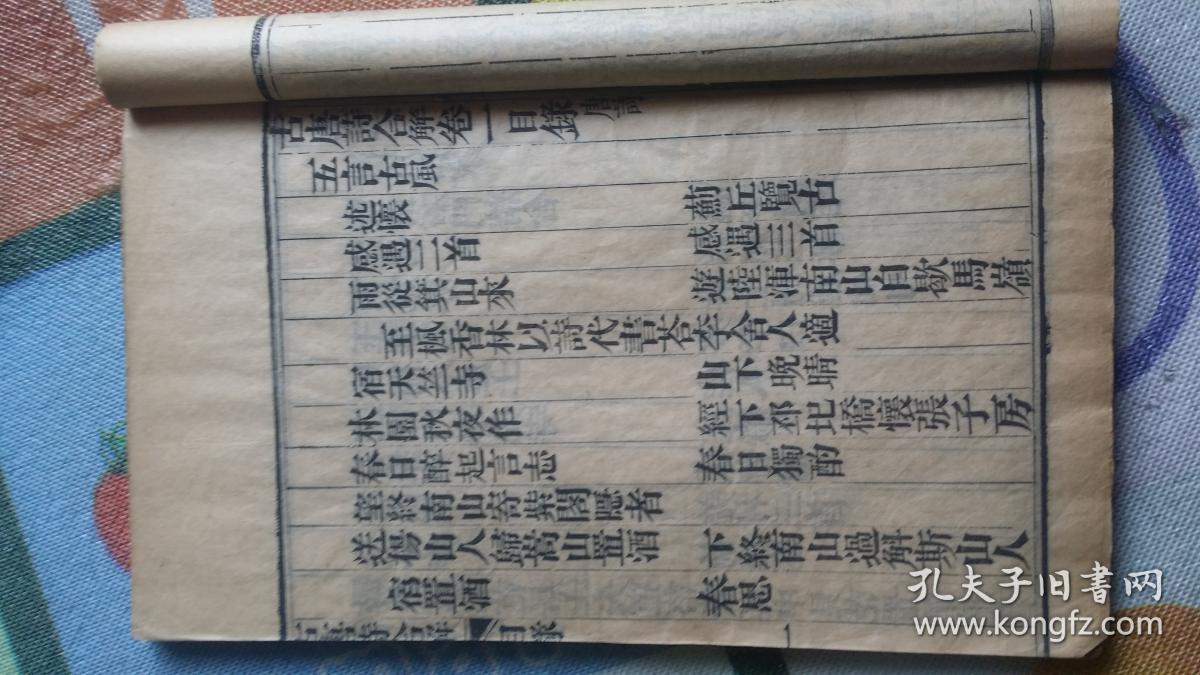 古唐詩合解卷一目錄 唐詩
五言古風
述懷 薊丘覽古
感遇二首 感遇三首
雨從箕山來 遊陸渾南山自歇馬嶺
至楓香林以詩代書荅李舍人適
宿天竺寺 山下晩晴
林園秋夜作 經下邳圯橋懷張子房
春日醉起言志 春日獨酌
望終南山寄紫閣隱者
送楊山人歸嵩山置酒 下終南山過斛斯山人
宿置酒 春思
古唐詩合解 目錄 一
孔夫子旧書网
www.kongfz.com